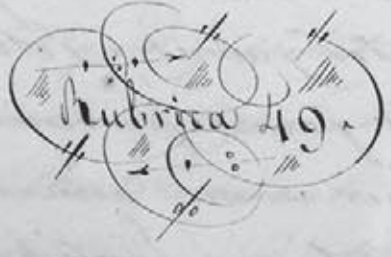 Rubrica 49.